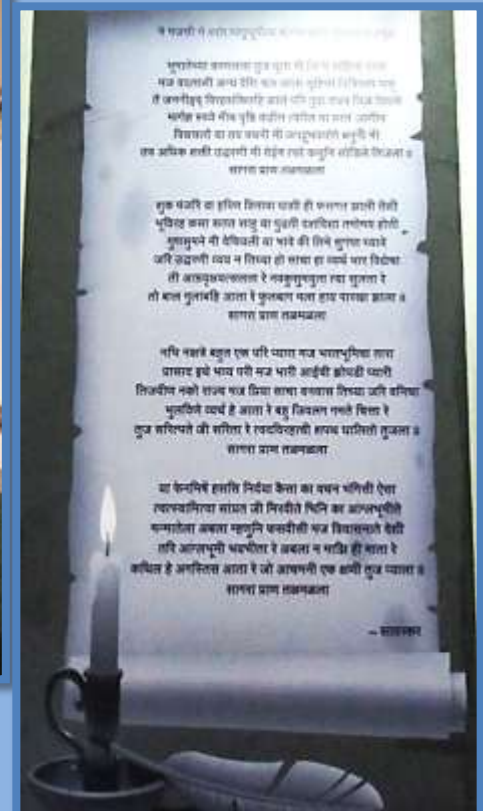 भूमातेच्या चरणतला तुज धूता मी नित्य पाहिला होता
मज वदलासी अन्य देशि चल जाऊ सृष्टिची विविधता पाहू
तैं जननीहृद् विरहशंकितहि झाले परि तुवां वचन तिज दिधले
मार्गज्ञ स्वये मीच पृष्ठि वाहीन त्वरित या परत आणीन
विश्वसलो या तव वचनी मी जगदनुभवयोगे बनुनी मी
तव अधिक शक्ती उद्धरणी मी येईन त्वरे कथुनि सोडिले तिजला ॥
सागरा प्राण तळमळला
शुक पंजरि वा हरिण शिरावा पाशी ही फसगत झाली तैशी
भूविरह कसा सतत साहु या पुढती दशदिशा तमोमय होती
गुणसुमने मी वेचियली या भावे की तिने सुगंधा घ्यावे
जरि उद्धरणी व्यय न तिच्या हो साचा हा व्यर्थ भार विद्येचा
ती आम्रवृक्षवत्सलता रे नवकुसुमयुता त्या सुलता रे
तो बाल गुलाबहि आता रे फुलबाग मला हाय पारखा झाला ॥
सागरा प्राण तळमळला
नभि नक्षत्रे बहुत एक परि प्यारा मज भरतभूमिचा तारा
प्रासाद इथे भव्य परी मज भारी आईची झोपडी प्यारी
तिजवीण नको राज्य मज प्रिया साचा वनवास तिच्या जरि वनिचा
भुलविणे व्यर्थ हे आता रे बहु जिवलग गमते चित्ता रे
तुज सरित्पते जी सरिता रे त्वदविरहाची शपथ घालितो तुजला ॥
सागरा प्राण तळमळला
या फेनमिषें हससि निर्दया कैसा का वचन भंगिसी ऐसा
त्वत्स्वामित्वा सांप्रत जी मिरवीते भिनि का आंग्लभूमीते
मन्मातेला अबला म्हणुनि फसवीसी मज विवासनाते देशी
तरि आंग्लभूमी भयभीता रे अबला न माझि ही माता रे
कथिल हे अगस्तिस आता रे जो आचमनी एक क्षणी तुज प्याला ॥
सागरा प्राण तळमळला
– सावरकर